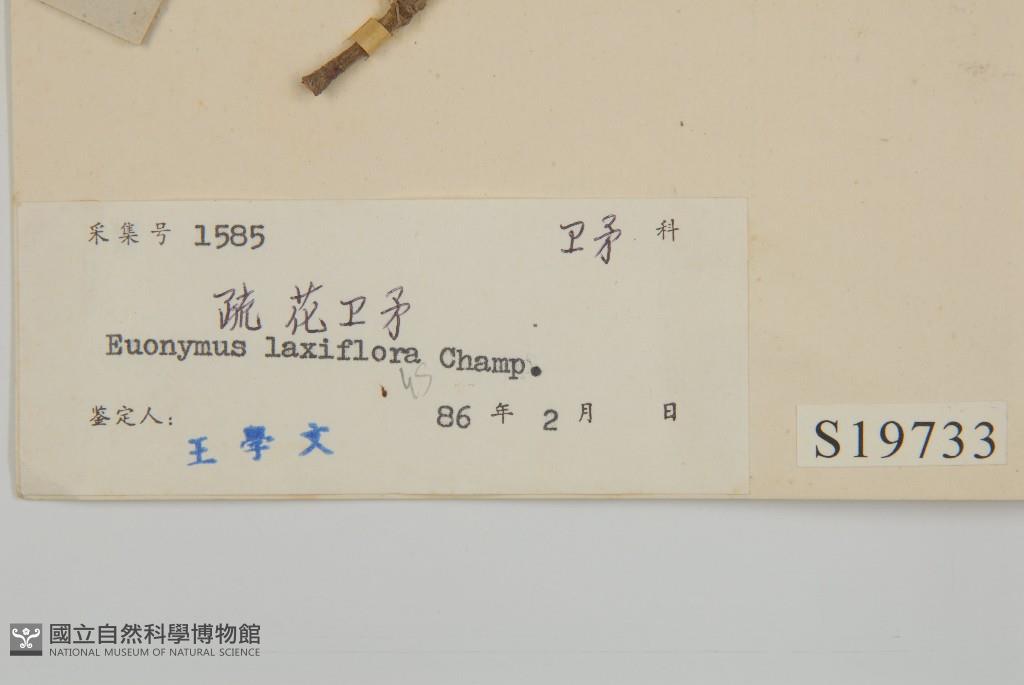 采集号 1585 卫矛 科
疏花卫矛
Euonymus laxiflora Champ.
鉴定人: 王學文 86 年 2 月 日
S19733
國立自然科學博物館
NATIONAL MUSEUM OF NATURAL SCIENCE